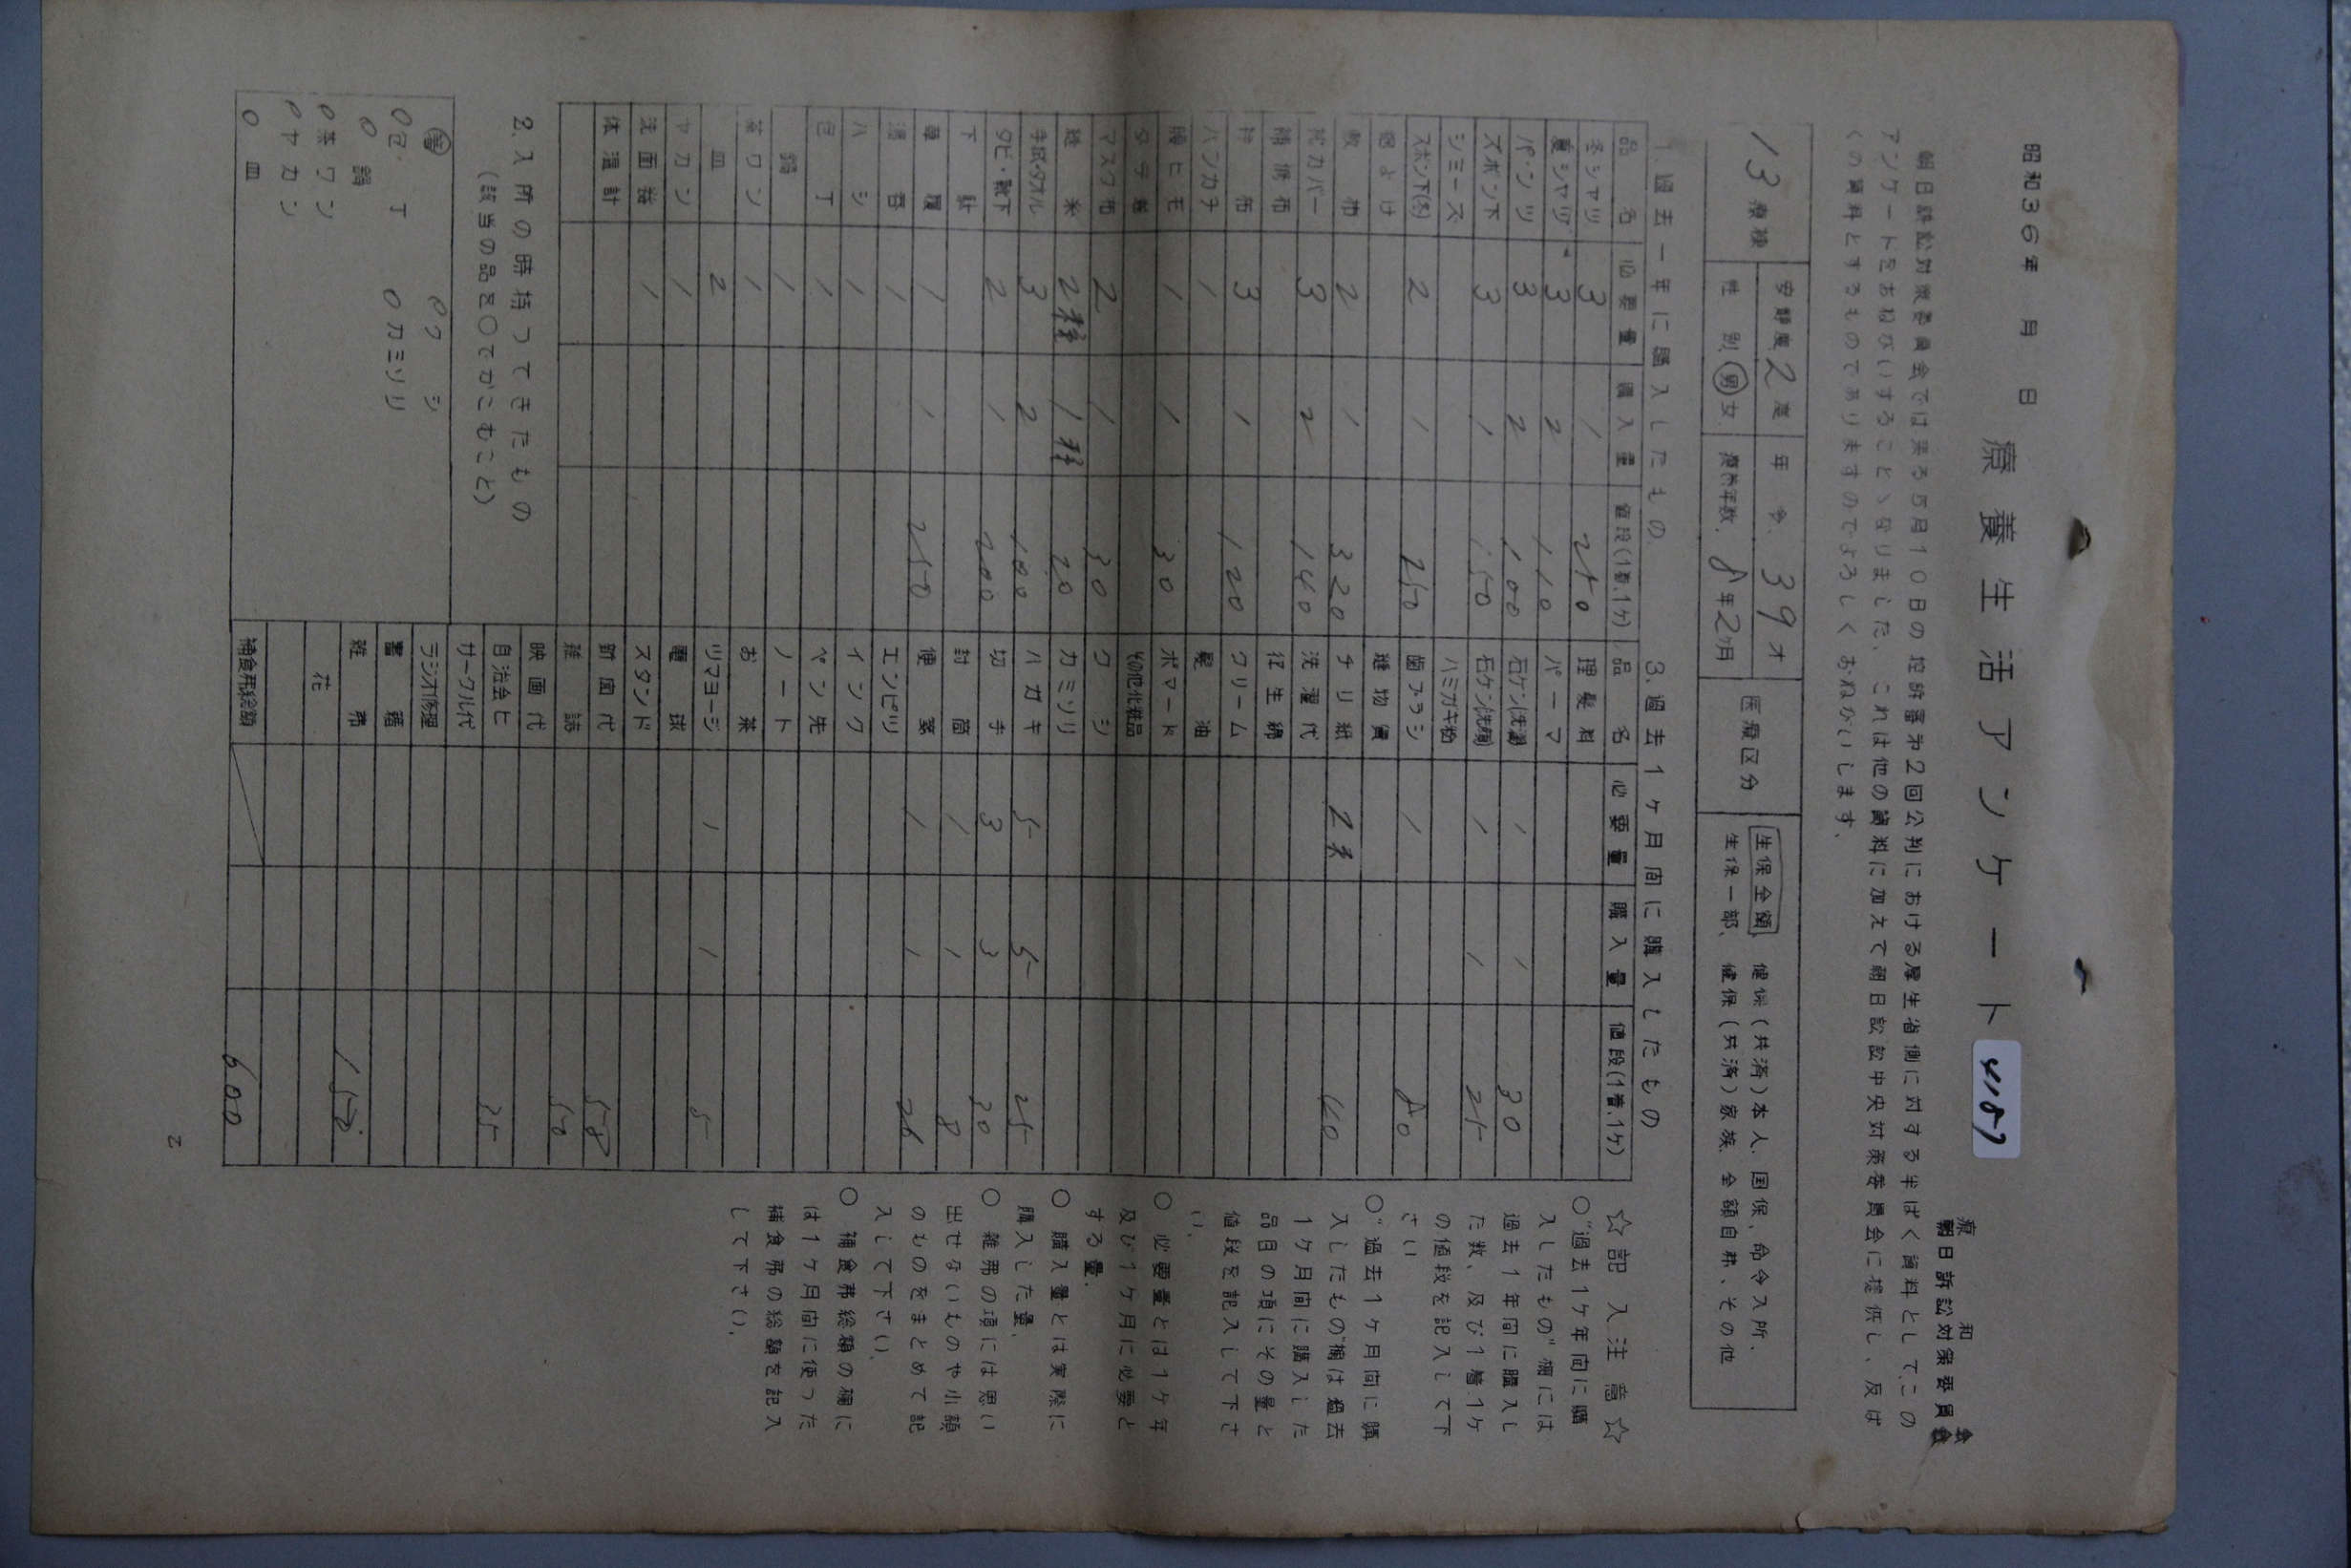 昭和36年　月　日
療養生活アンケート
4187
療和会
朝日訴訟対策委員会
朝日訴訟対策委員会では来る5月10日の控訴審第2回公判における厚生省側に対する半ばく資料として、この
アンケートをおねがいすることゝなりました、これは他の資料に加えて朝日訟訟中央対策委員会に提供し、反ば
くの資料とするものでありますのでよろしくおねがいします、
13 療棟
安静度 2 度
年令 39 才
医療区分
生保全額、健保(共済)本人、国保、命令入所、
性別 男 女
療养年数、8年2ヶ月
生保一部、健保(共済)家族、全額自弗、その他
1.過去一年に購入したもの
品名 必要量 購入量 値段(1着、1ケ)
冬シャツ 3 1 250
夏シャツ 3 2 110
パンツ 3 2 100
ズボン下 3 1 150
シミーズ
スボン下(冬) 2 1 250
敷布 2 1 320
枕カバー 3 2 140
補修布
3 1 120
ハンカチ 1
腰ヒモ 1 1 30
マスク布 2 1 30
2 1 20
手拭・タオル 3 2 100
タビ・靴下 2 1 200
下駄
草履 1 1 250
湯呑 1
ハシ 1
包丁 1
鍋 1
茶ワン 1
皿 2
ヤカン 1
洗面器 1
体温計
2.入所の時持ってきたもの
(該当の品を○でかこむこと)
クシ
包丁 カミソリ
鍋
茶ワン
ヤカン
皿
3.過去1ヶ月間に購入したもの
品名 必要量 購入量 値段(1着、1ケ)
理髪料
パーマ
石ケン(洗濯) 1 1 30
石ケン(洗顔) 1 1 25
ハミガキ粉
歯ブラシ 1 80
縫物賃
チリ紙 2 40
洗濯代
衛生綿
クリーム
髪油
ポマード
その他化粧品
クシ
カミソリ
ハガキ 5 5 25
切手 3 3 30
封筒 1 1 8
便箋 1 1 26
エンピツ
インク
ペン先
ノート
お茶
ツマヨージ 1 1 5
電球
スタンド
新聞代 58
雑誌 50
映画代
自治会ヒ 35
サークル代
ラジオ修理
書籍
雑弗 150
花
補食弗総額 600
☆記入注意☆
○"過去1ヶ年間に購
入したもの"欄には
過去1年間に購入し
た数、及び1着1ケ
の値段を記入して下
さい
○"過去1ヶ月間に購
入したもの"欄は過去
1ヶ月間に購入した
品目の項にその量と
値段を記入して下さ
い、
○ 必要量とは1ヶ年
及び1ヶ月に必要と
する量、
○ 購入量とは実際に
購入した量、
○ 雑弗の項には思い
出せないものや小額
のものをまとめて記
入して下さい、
○ 補食弗総額の欄に
は1ヶ月間に使った
補食弗の総額を記入
して下さい、
2